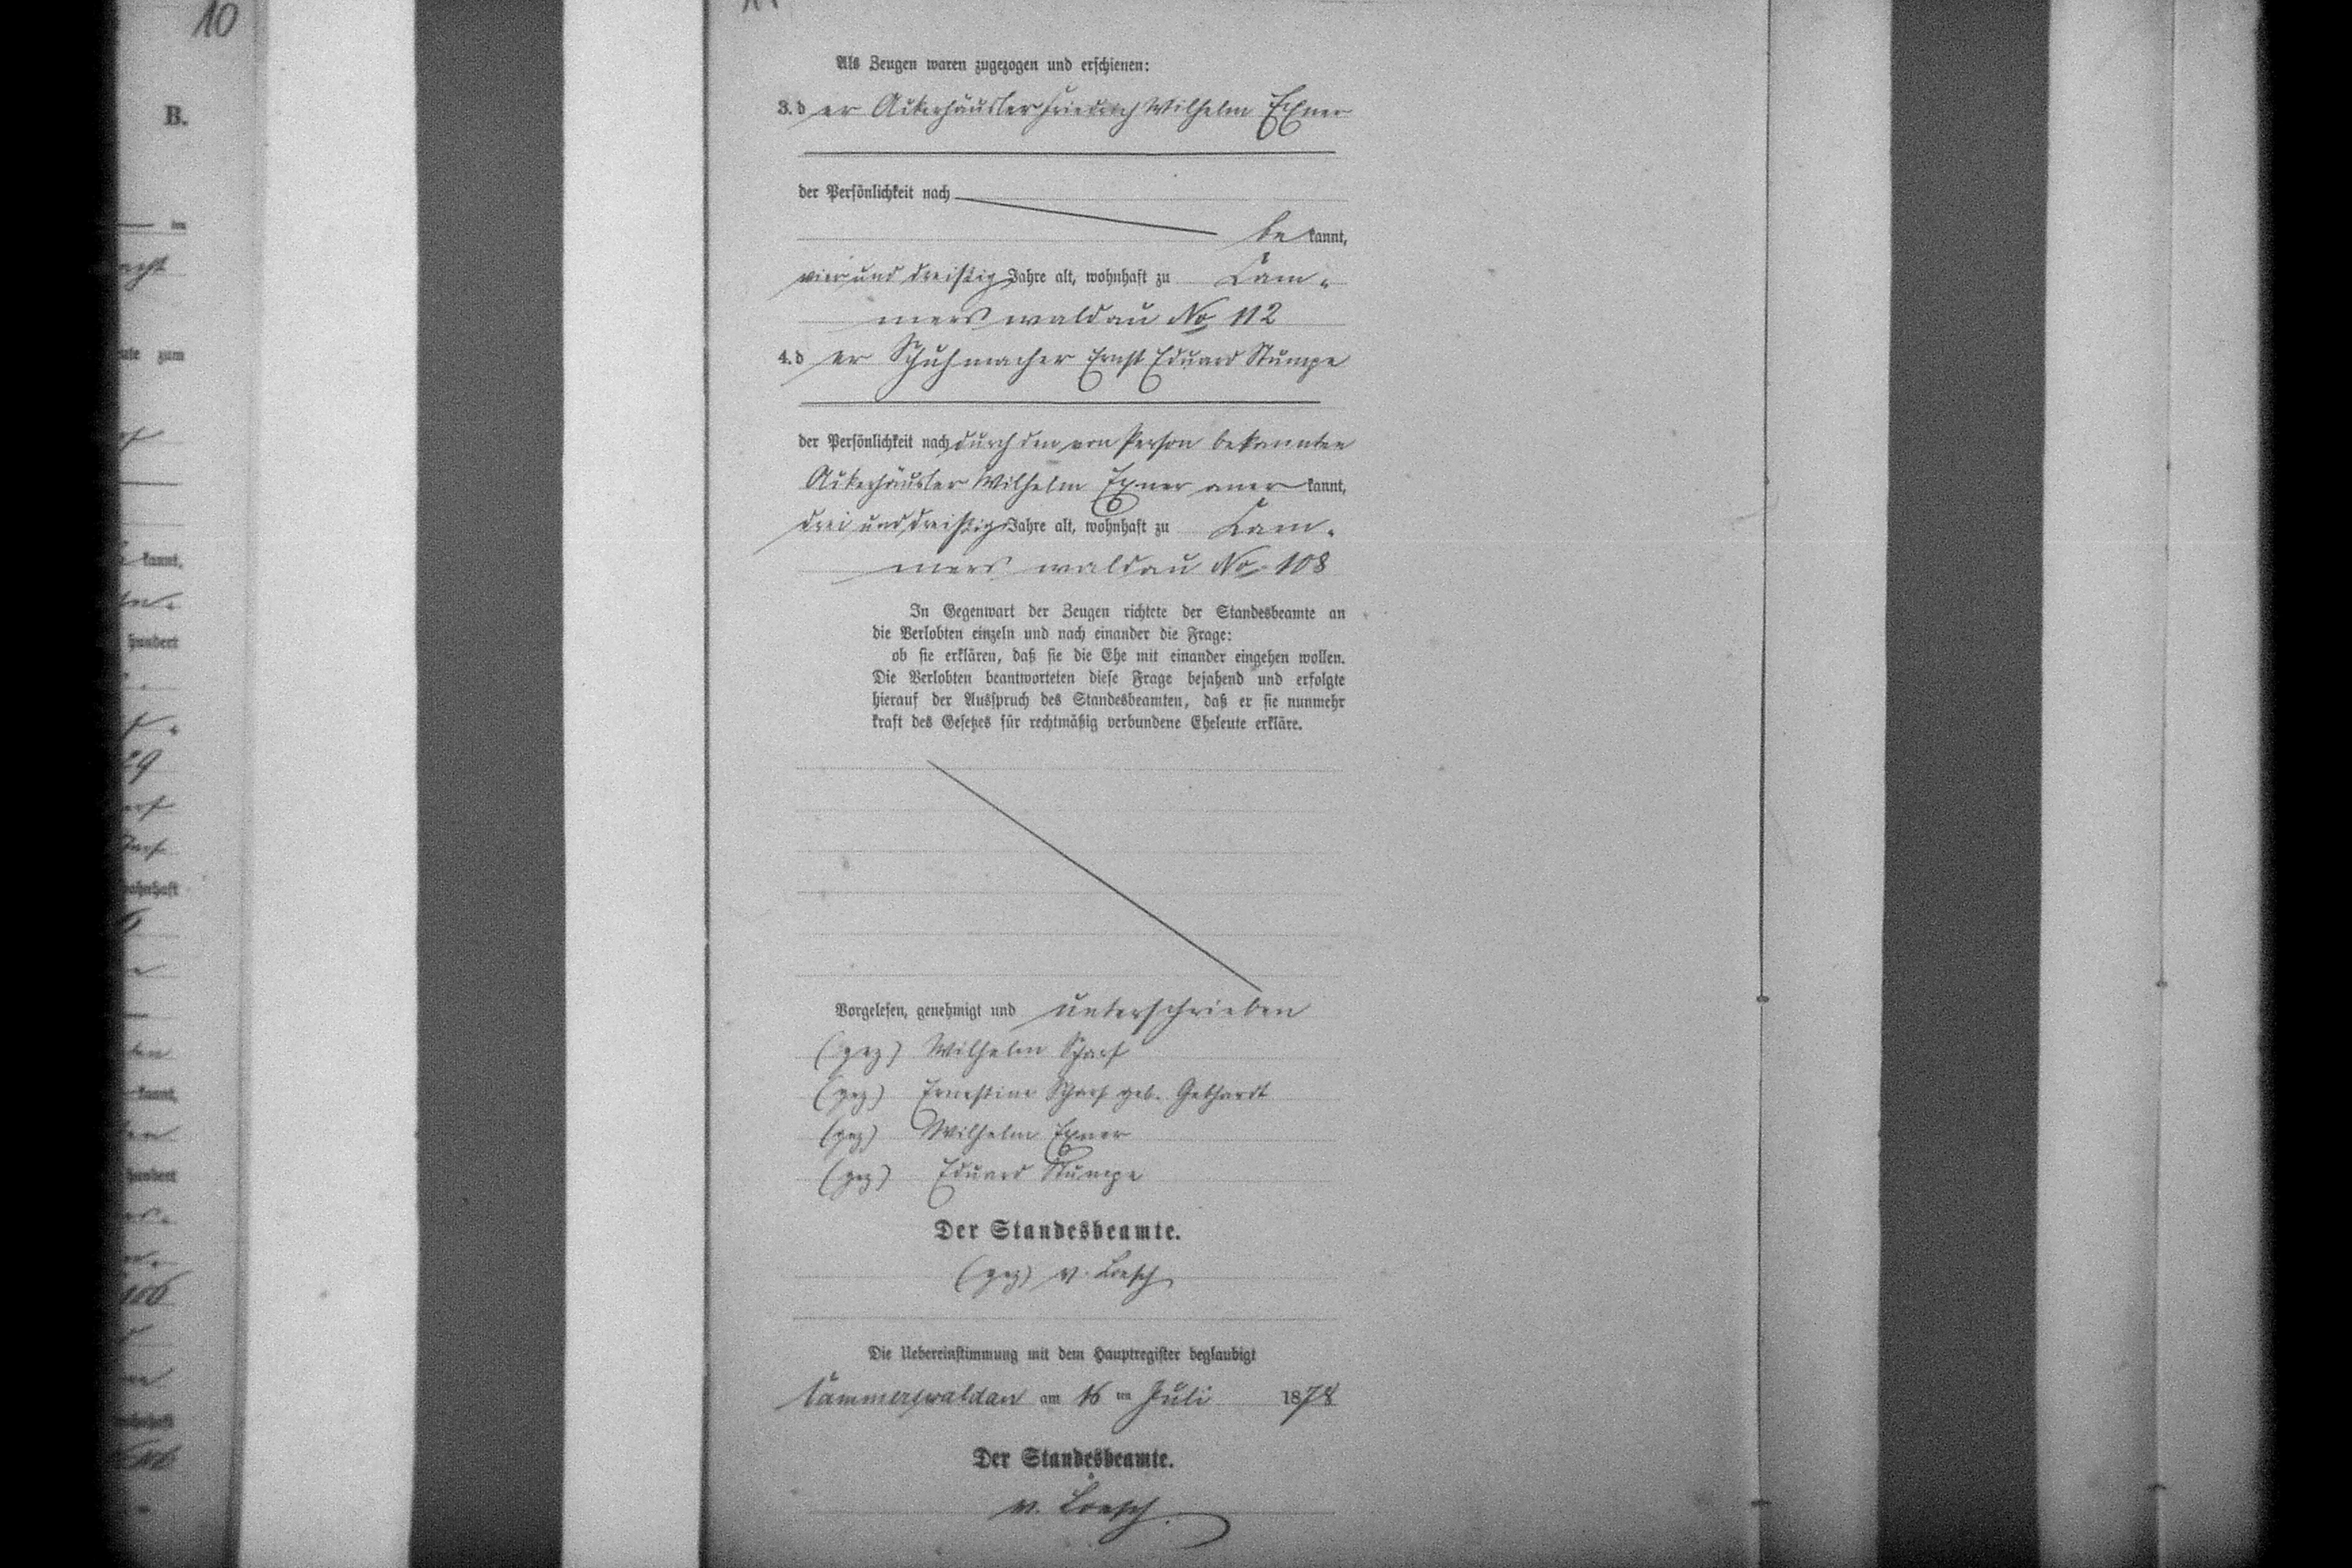 10
B.
Als Zeugen waren zugezogen und erschienen:
3. der Ackerhäusler Friedrich Wilhelm Exner
der Persönlichkeit nach
bekannt,
vier und dreißig Jahre alt, wohnhaft zu Cam-
merswaldau No 112
4. der Schuhmacher Ernst Eduard Stumpe
der Persönlichkeit nach durch den von Person bekannten
Ackerhäusler Wilhelm Exner anerkannt,
drei und dreißig Jahre alt, wohnhaft zu Cam-
merswaldau No 108
In Gegenwart der Zeugen richtete der Standesbeamte an
die Verlobten einzeln und nach einander die Frage:
ob sie erklären, daß sie die Ehe mit einander eingehen wollen.
Die Verlobten beantworteten diese Frage bejahend und erfolgte
hierauf der Ausspruch des Standesbeamten, daß er sie nunmehr
kraft des Gesetzes für rechtmäßig verbundene Eheleute erkläre.
Vorgelesen, genehmigt und unterschrieben
(gez) Wilhelm Scharf
(gez) Ernestine Scharf geb. Gebhardt
(gez) Wilhelm Exner
(gez) Eduard Stumpe
Der Standesbeamte.
(gez) v. Loesch
Die Uebereinstimmung mit dem Hauptregister beglaubigt
Cammerswaldau am 16 ten Juli 1878
Der Standesbeamte.
v. Loesch